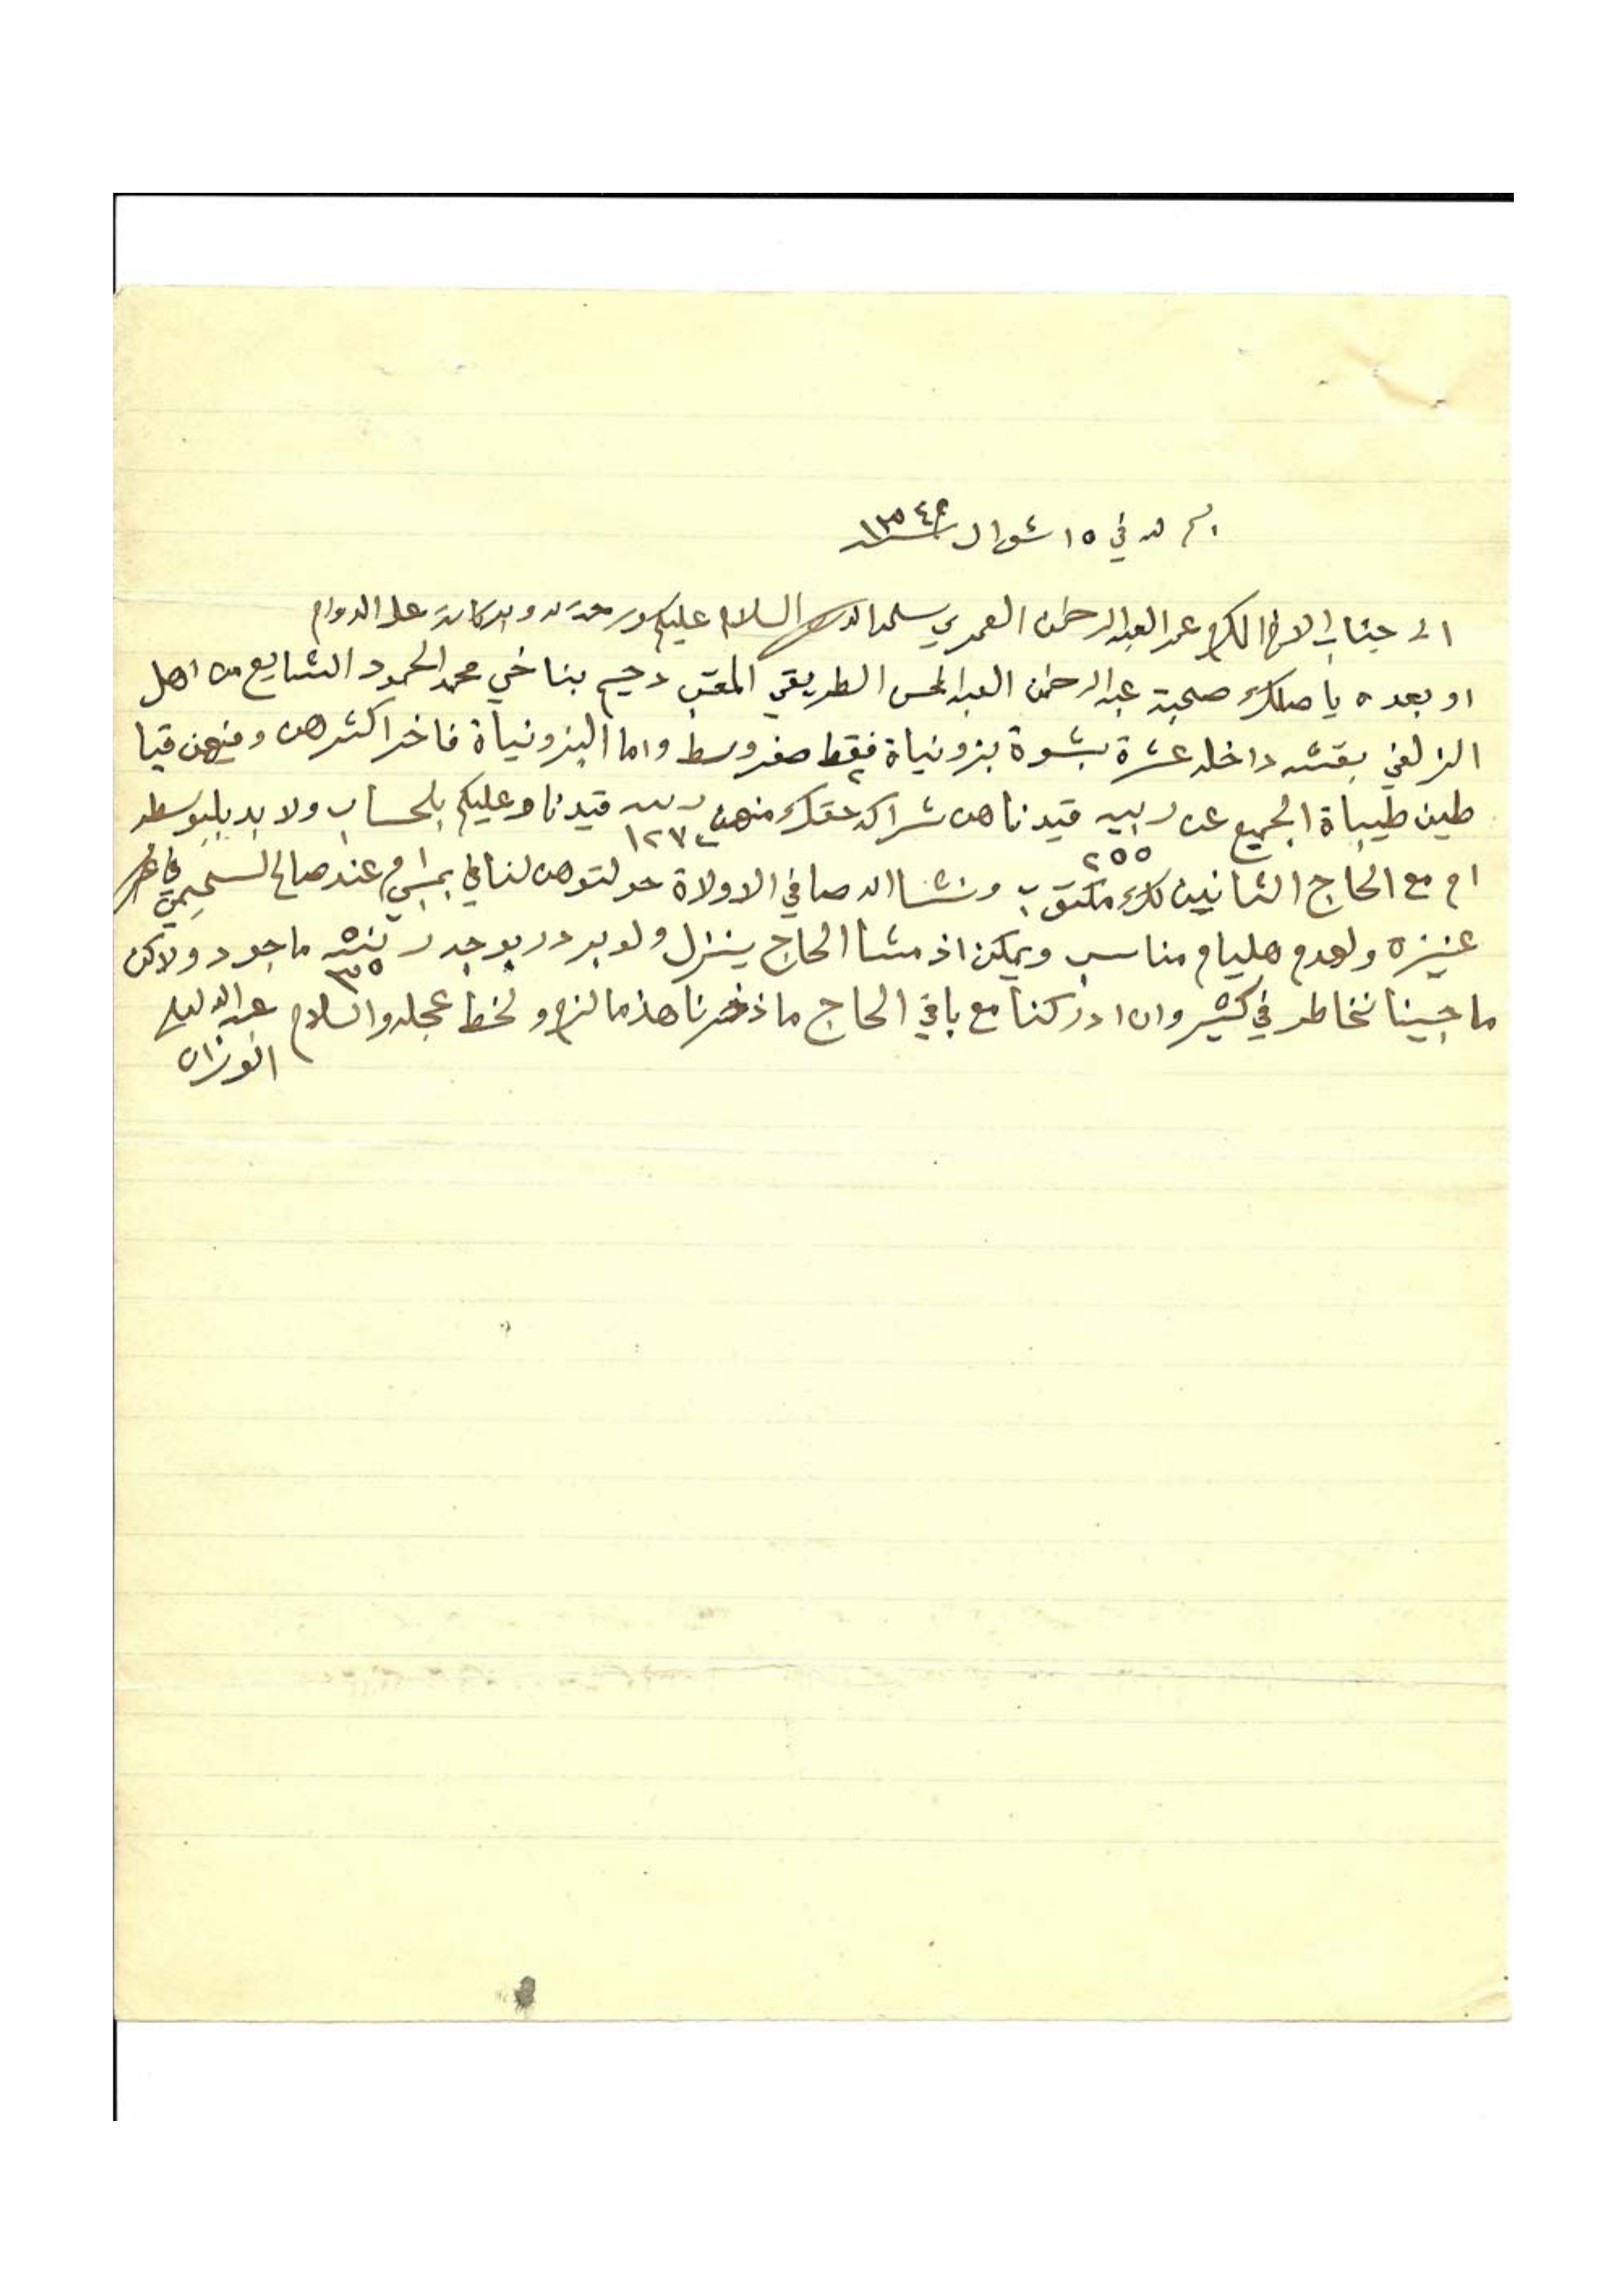 بسم الله في ١٥ شوال سنة ١٣٤٩
الى جناب الاخ المكرم عبد العبد الرحمن العمري سلمه الله السلام عليكم ورحمة الله وبركاته على الدوام
او بعده ياصلك صحبة عبد الرحمن العبد المحسن الطريقي الملقب دحيم بناخي محمد الحمود الشايع من اهل
الزلفي بقشه داخله عشرة بشوة بزونياة فقط ٢ صفر وسط واما البزونياة فاخر اكثرهن ومنهن قيا
طين طيباة الجميع عن ربيه ٢٥٥ قيدناهن شراكه حقك منهن ربيه ١٢٧ قيدنا وعليكم بلحساب ولابد بلبوسطه
ام مع الحاج الثانيين لك مكتوب ونشا الله صافي الاولاة حولتوهن لنا في عند صالح السحيمي في
عنيزه ولعدم هليام مناسب ويمكن اذ مشا الحاج ينزل ولو بردر يوجد ٣٥ ماجود ولاكن
ماجينا نخاطر في كثير وان ادركنا مع باقي الحاج ماذخرنا هذ مالزم ولخط عجله والسلام عبد الله
الوزان